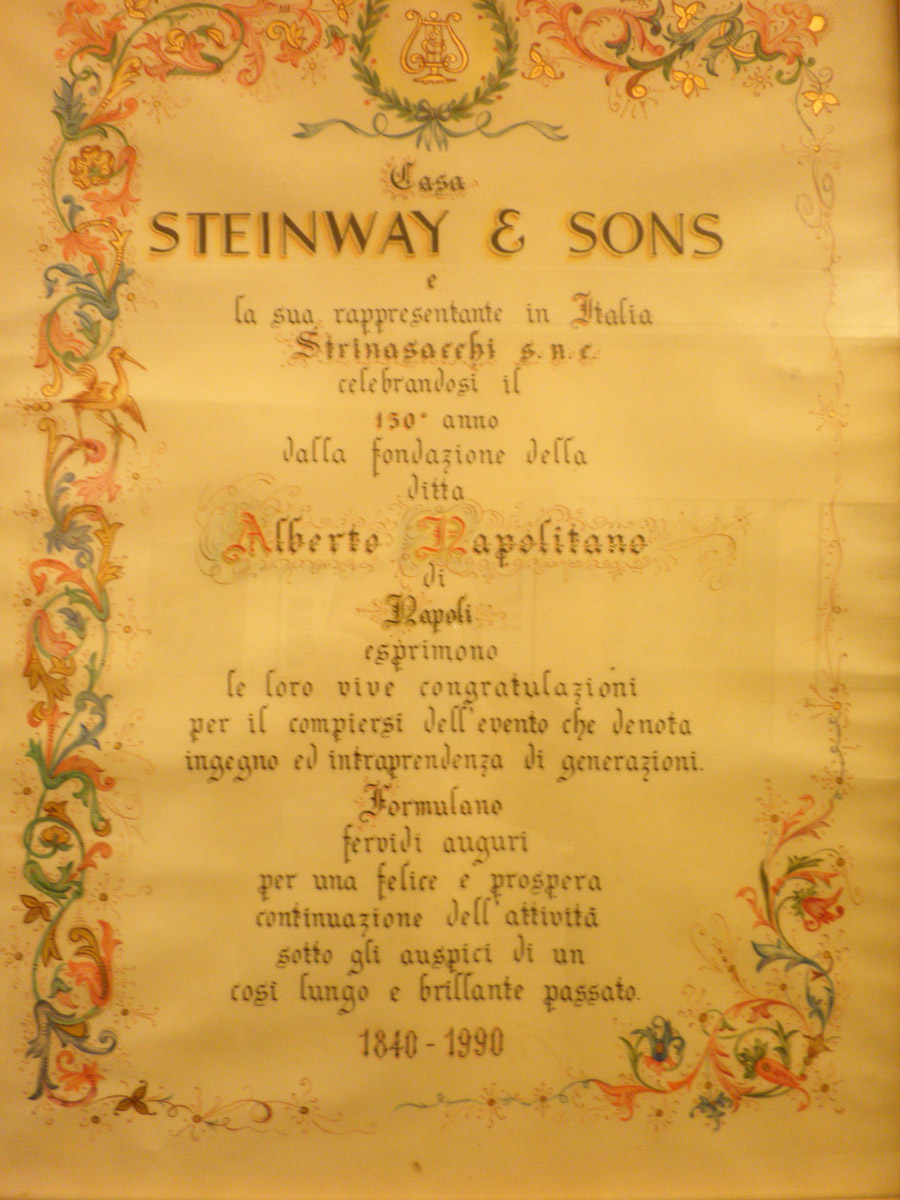 Casa
STEINWAY & SONS
e
la sua rappresentante in Italia
Strinasacchi s.n.c.
celebrandosi il
150° anno
dalla fondazione della
ditta
Alberto Napolitano
di
Napoli
esprimono
le loro vive congratulazioni
per il compiersi dell'evento che denota
ingegno ed intraprendenza di generazioni.
Formulano
fervidi auguri
per una felice e prospera
continuazione dell'attività
sotto gli auspici di un
così lungo e brillante passato.
1840 - 1990